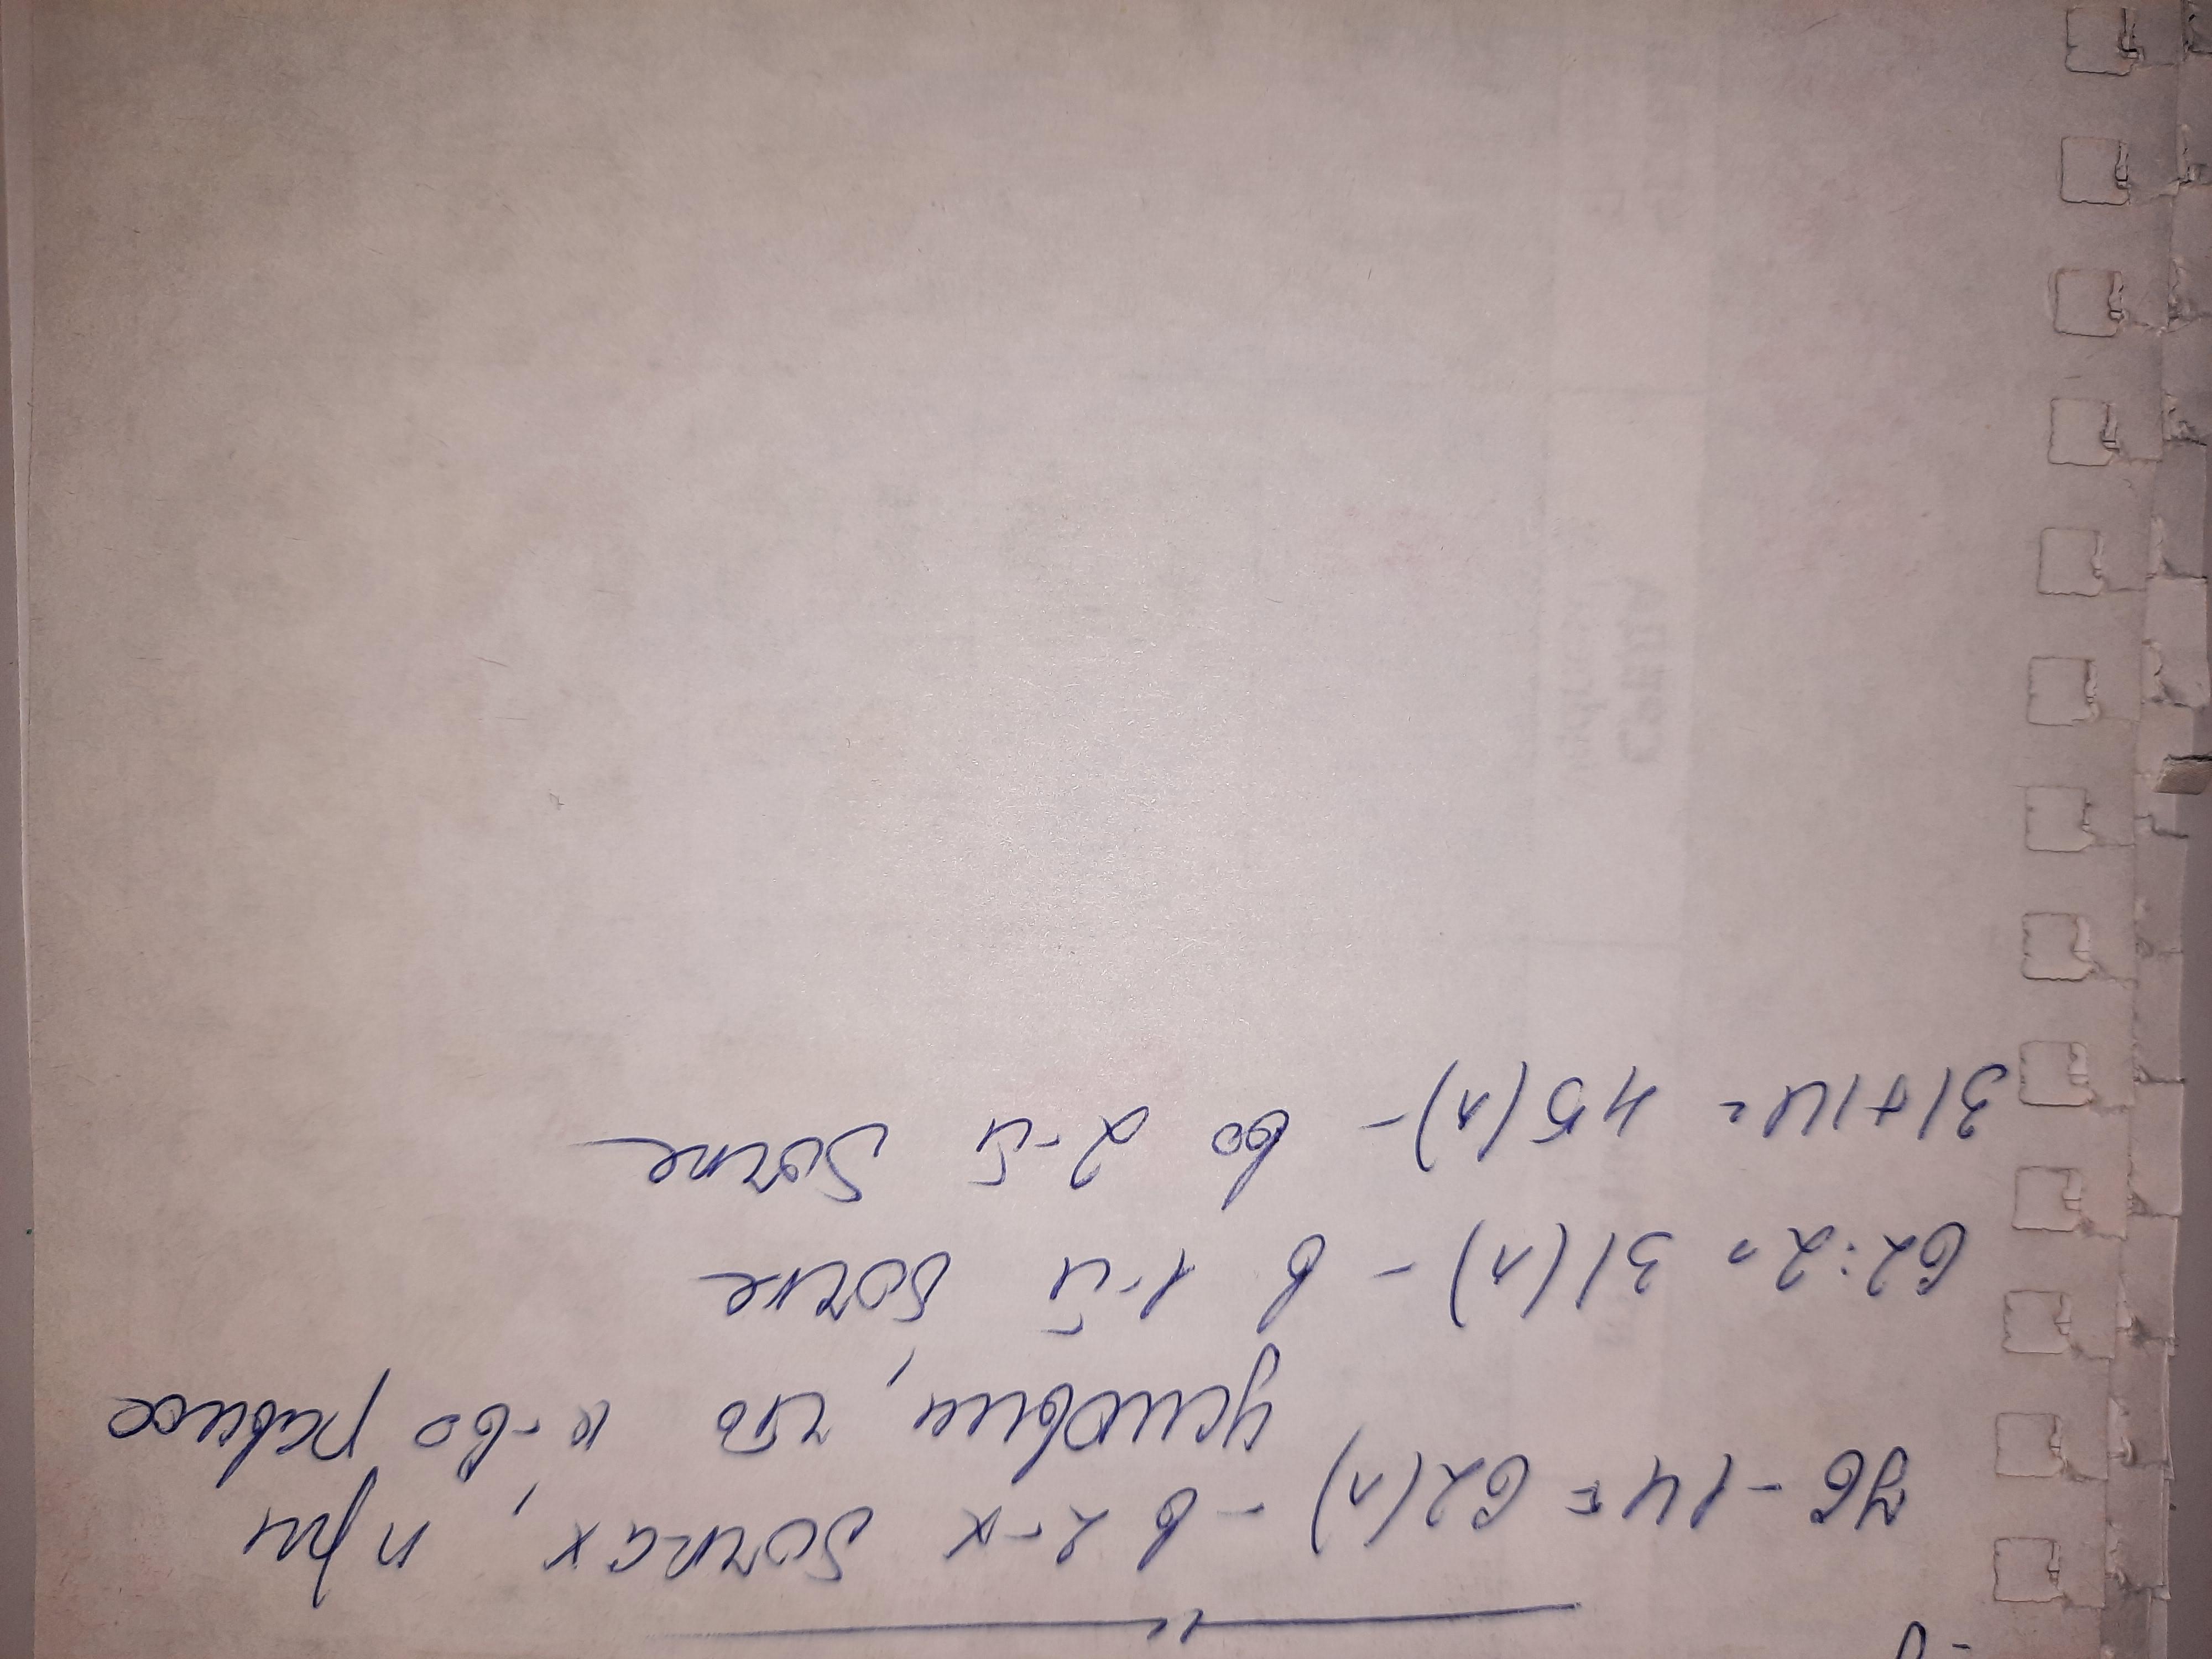 76 - 14 = 62 (л) - в 2-х бочках, при
условии, что к-во равное
62 : 2 = 31 (л) - в 1-й бочке
31 + 14 = 45 (л) - во 2-й бочке